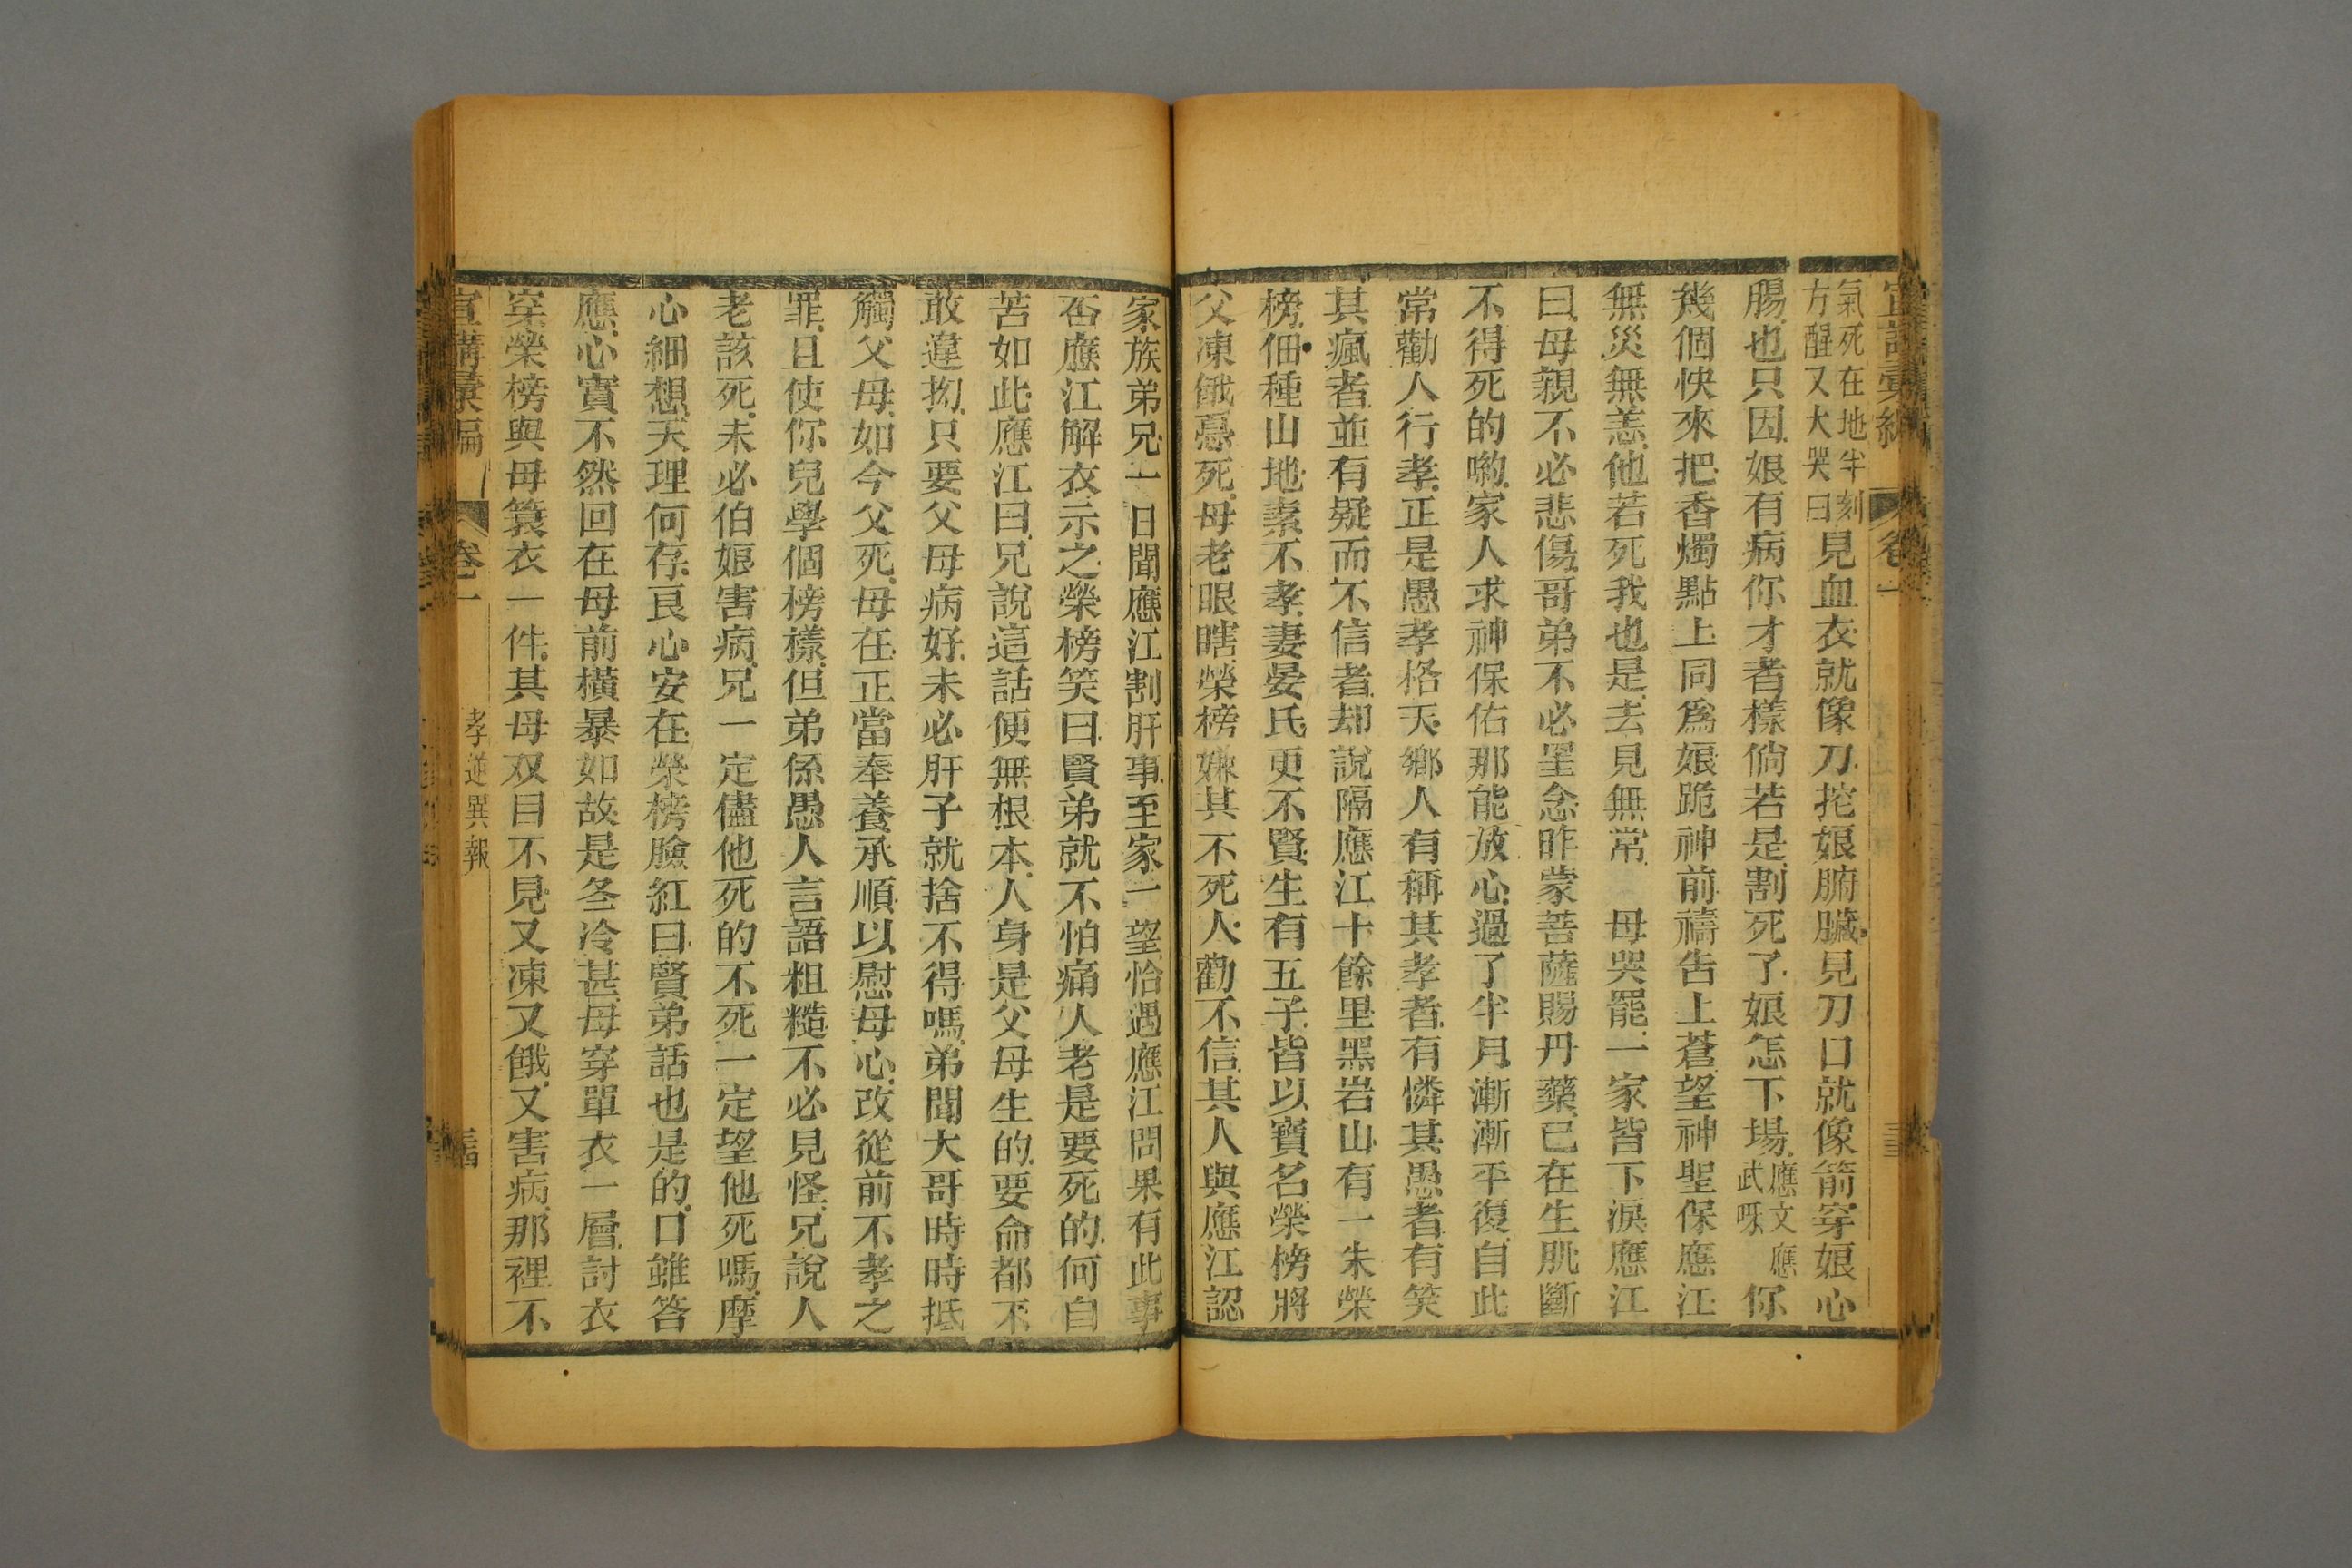 宣講彙編 卷一
氣死在地半刻方醒又大哭曰見血衣就像刀挖娘腑臟見刀口就像箭穿娘心
腸也只因娘有病你才者樣倘若是割死了娘怎下場應文應武呀你
幾個快來把香燭點上同爲娘跪神前禱告上蒼望神聖保應江
無災無恙他若死我也是去見無常 母哭罷一家皆下淚應江
曰母親不必悲傷哥弟不必罣念昨蒙菩薩賜丹藥已在生肌斷
不得死的喲家人求神保佑那能放心過了半月漸漸平復自此
常勸人行孝正是愚孝格天鄉人有稱其孝者有憐其愚者有笑
其瘋者並有疑而不信者却說隔應江十餘里黑岩山有一朱榮
榜佃種山地素不孝妻晏氏更不賢生有五子皆以寶名榮榜將
父凍餓憂死母老眼瞎榮榜嫌其不死人勸不信其人與應江認
家族弟兄一日聞應江割肝事至家一望恰遇應江問果有此事
否應江解衣示之榮榜笑曰賢弟就不怕痛人老是要死的何自
苦如此應江曰兄說這話便無根本人身是父母生的要命都不
敢違拗只要父母病好未必肝子就捨不得嗎弟聞大哥時時抵
觸父母如今父死母在正當奉養承順以慰母心改從前不孝之
罪且使你兒學個榜樣但弟係愚人言語粗糙不必見怪兄說人
老該死未必伯娘害病兄一定儘他死的不死一定望他死嗎摩
心細想天理何存良心安在榮榜臉紅曰賢弟話也是的口雖答
應心實不然回在母前橫暴如故是冬冷甚母穿單衣一層討衣
穿榮榜與母簑衣一件其母双目不見又凍又餓又害病那裡不
宣講彙編 卷一 孝逆異報